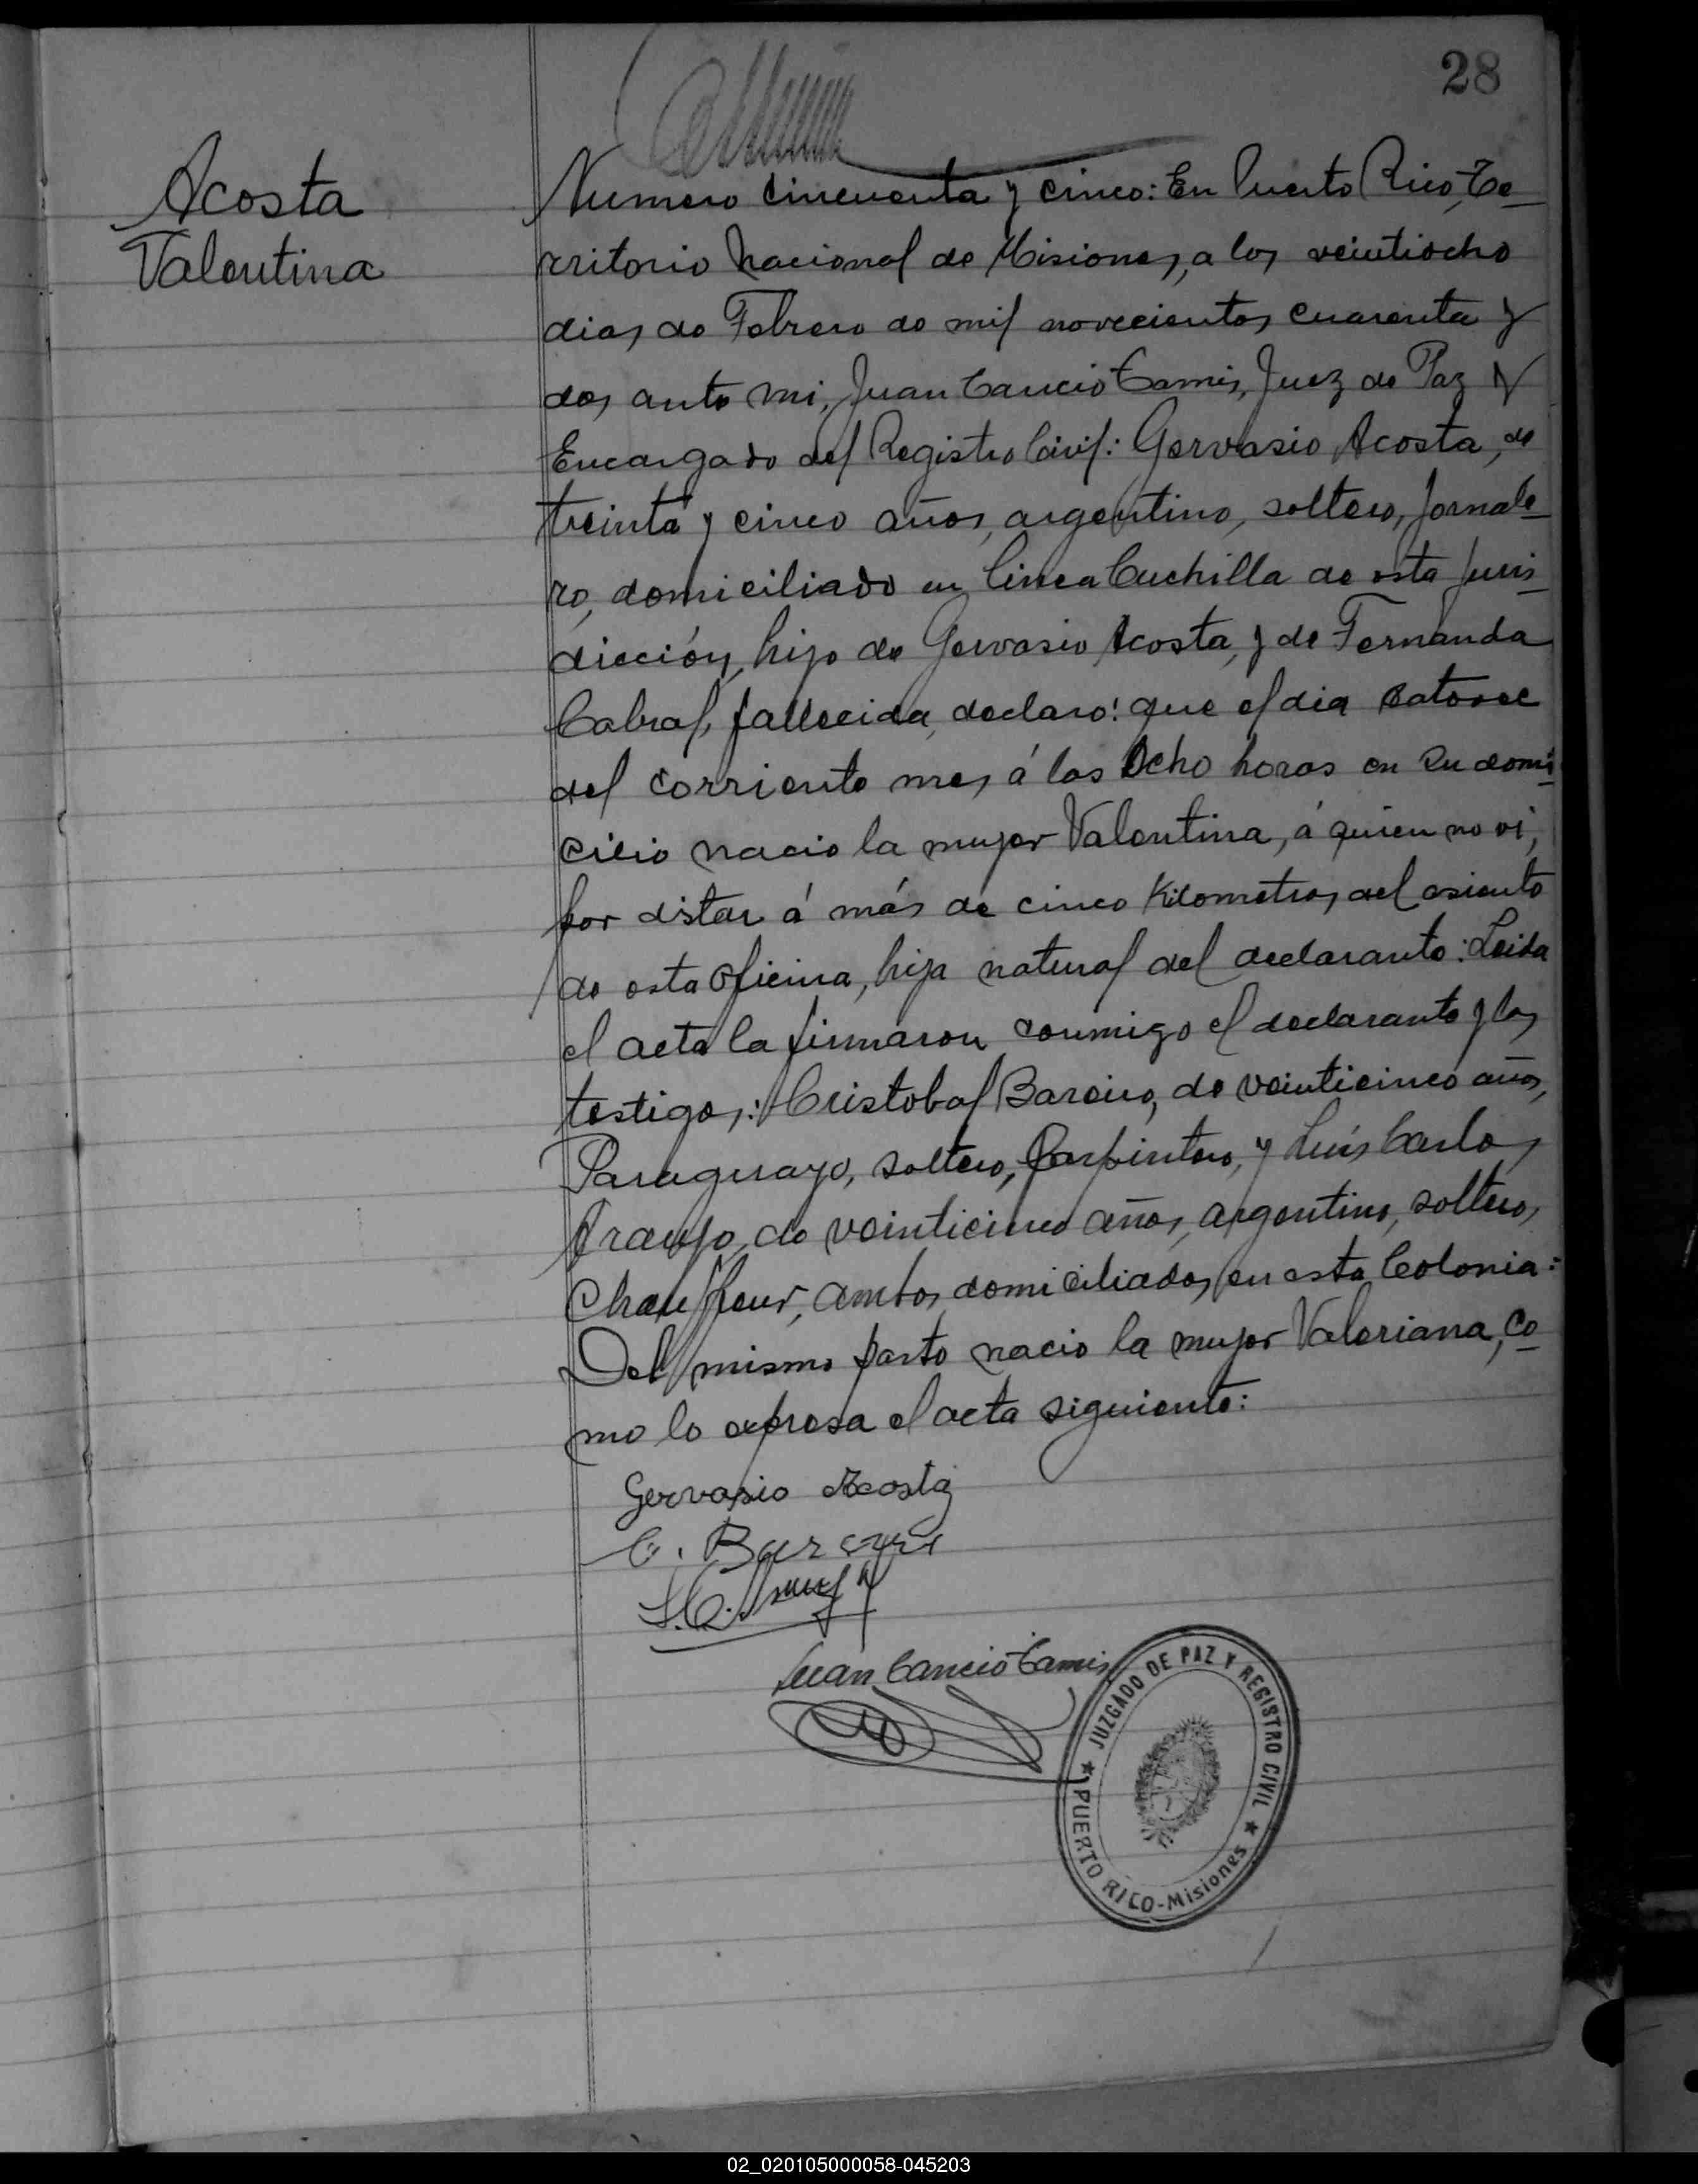 28
Acosta
Valentina
Numero Cincuenta y cinco: En Puerto Rico, Te-
rritorio Nacional de Misiones, a los veintiocho
dias de Febrero de mil novecientos cuarenta y
dos, ante mi, Juan Cancio Camis, Juez de Paz y
Encargado del Registro Civil: Gervasio Acosta, de
treinta y cinco años, argentino, soltero, Jornale-
ro, domiciliado en Linea Cuchilla de esta Juris-
dicción, hijo de Gervasio Acosta, y de Fernanda
Cabral, fallecida, declaro: que el dia catorce
del corriente mes, á las Ocho horas en su domi-
cilio nacio la mujer Valentina, á quien no vi,
por distar á más de cinco Kilometros del asiento
de esta Oficina, hija natural del declarante: Leida
el acta la firmaron conmigo el declarante y los
testigos: Cristobal Bareiro, de veinticinco años,
Paraguayo, soltero, Carpintero, y Luis Carlos
Araujo, de veinticinco años, argentino, soltero,
Chauffeur, ambos domiciliados en esta Colonia:
Del mismo parto nacio la mujer Valeriana, co-
mo lo expresa el acta siguiente:
Gervasio Acosta
C. Bareiro
Juan Cancio Camis
JUZGADO DE PAZ Y REGISTRO CIVIL
PUERTO RICO-Misiones
02_020105000058-045203